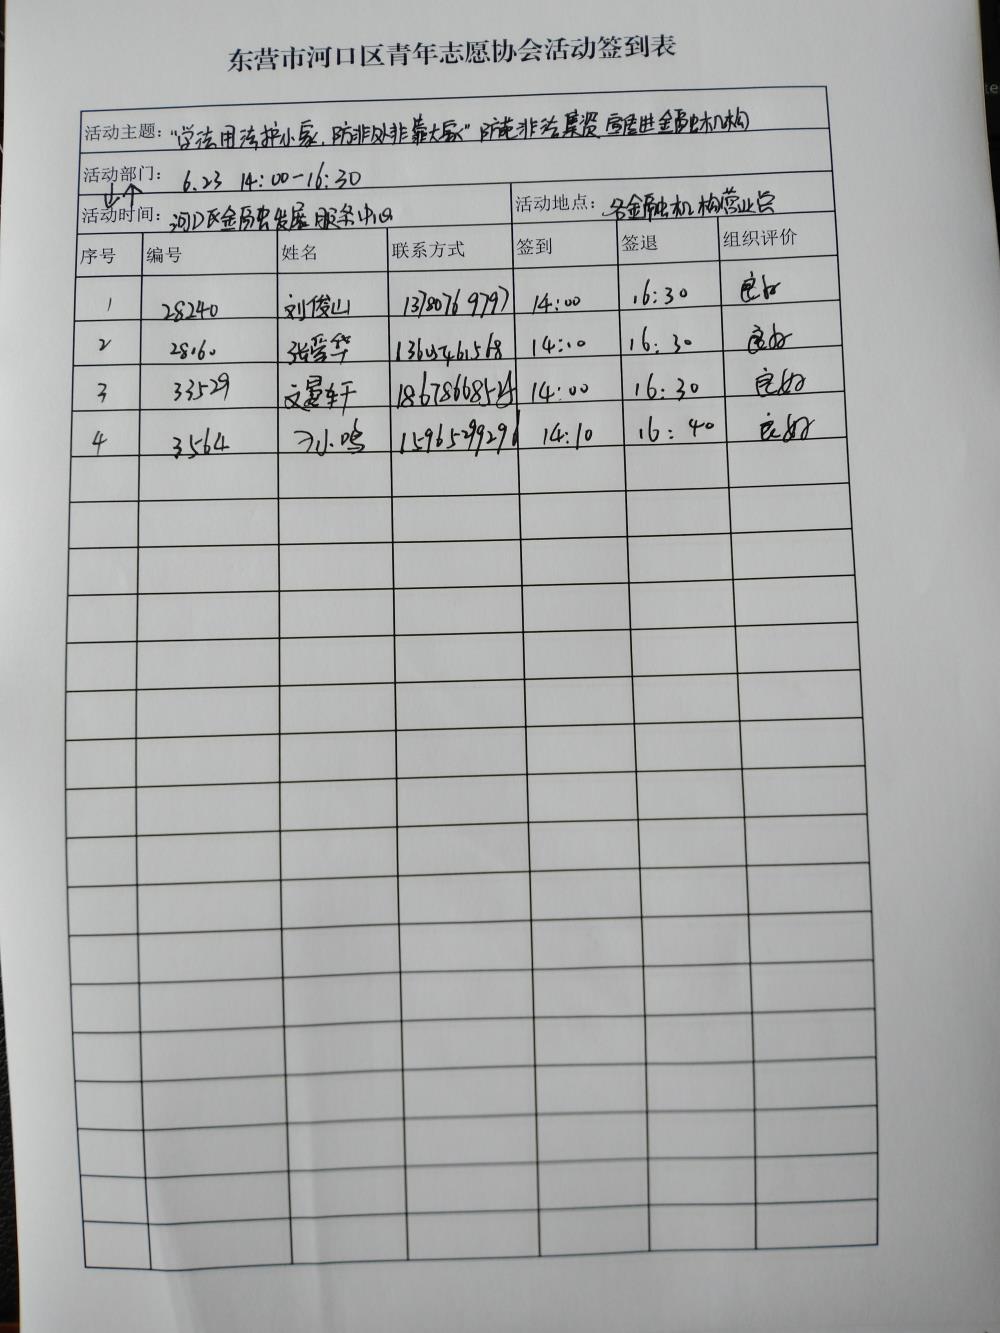 东营市河口区青年志愿协会活动签到表
活动主题：“学法用法护小家，防非处非靠大家”防范非法集资宣传进金融机构
活动部门： 6.23 14:00-16:30
活动时间：河口区金融发展服务中心 活动地点：各金融机构营业点
序号 编号 姓名 联系方式 签到 签退 组织评价
1 28240 刘俊山 13780769797 14:00 16:30 良好
2 28160 华 14:10 16:30 良好
3 33529 14:00 16:30 良好
4 3564 刁小鸣 15965299291 14:10 16:40 良好